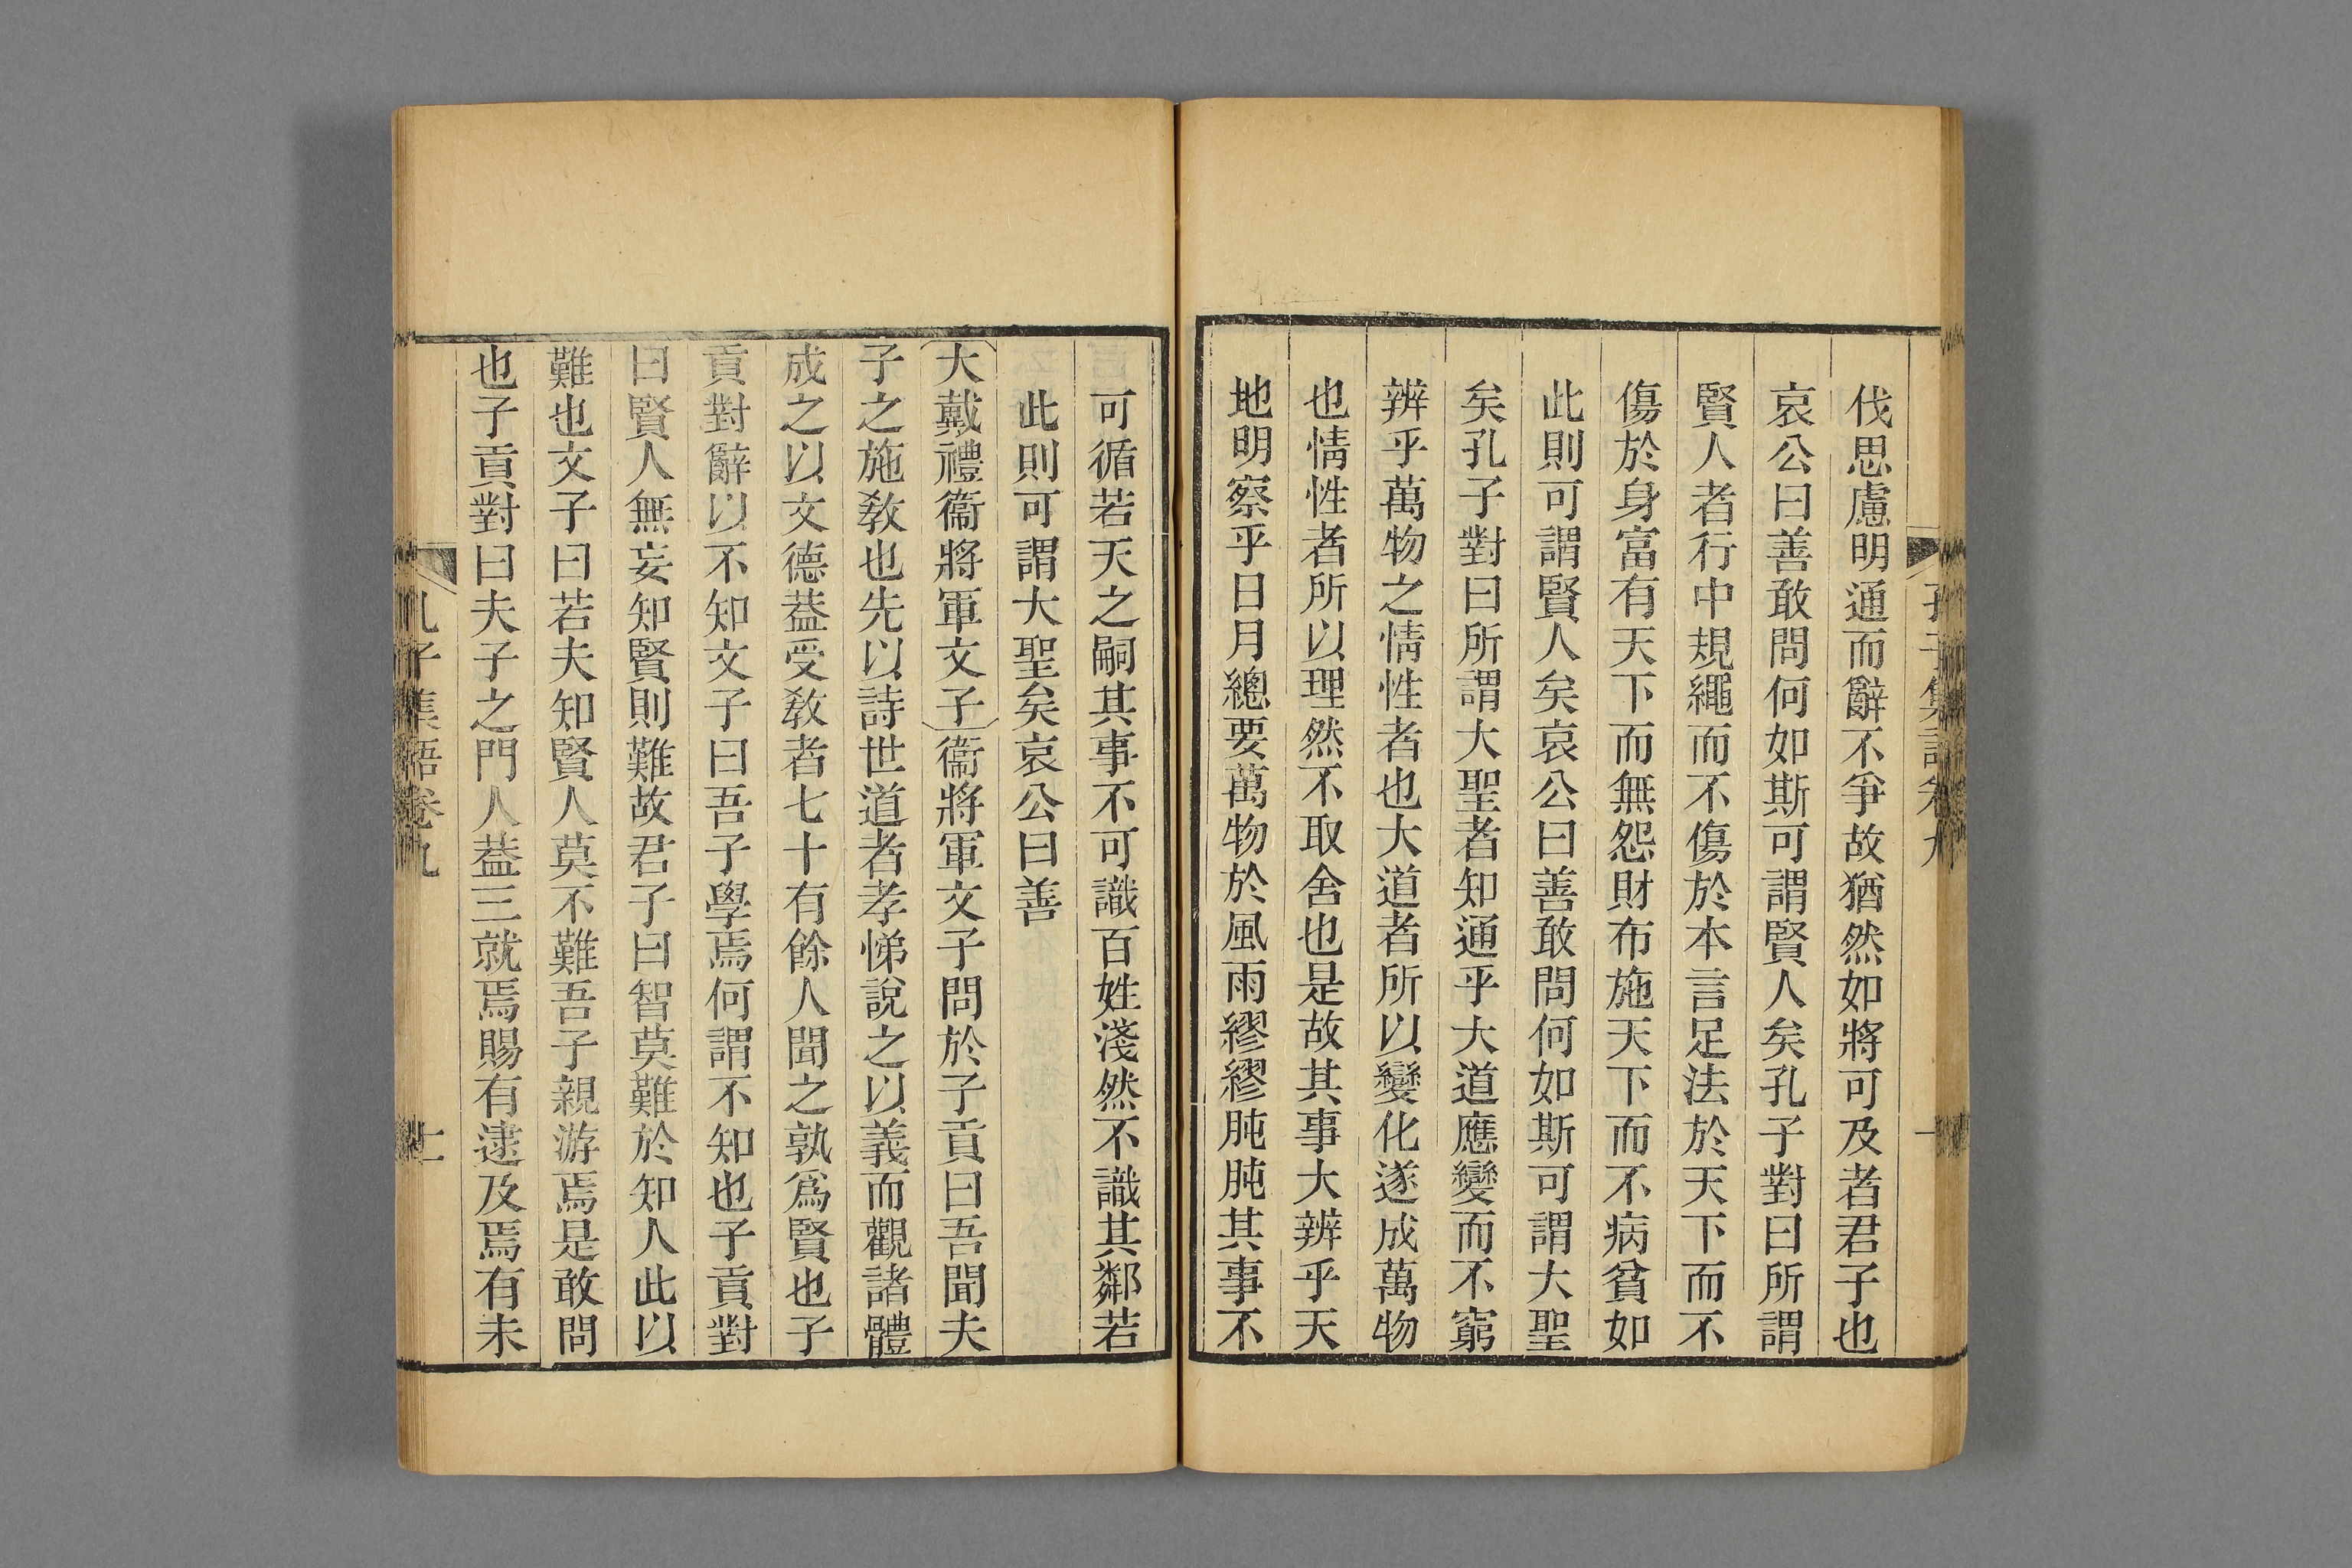 伐思慮明通而辭不爭故猶然如將可及者君子也
哀公曰善敢問何如斯可謂賢人矣孔子對曰所謂
賢人者行中規繩而不傷於本言足法於天下而不
傷於身富有天下而無怨財布施天下而不病貧如
此則可謂賢人矣哀公曰善敢問何如斯可謂大聖
矣孔子對曰所謂大聖者知通乎大道應變而不窮
辨乎萬物之情性者也大道者所以變化遂成萬物
也情性者所以理然不取舍也是故其事大辨乎天
地明察乎日月總要萬物於風雨繆繆肫肫其事不
可循若天之嗣其事不可識百姓淺然不識其鄰若
此則可謂大聖矣哀公曰善
〔大戴禮衞將軍文子〕衞將軍文子問於子貢曰吾聞夫
子之施敎也先以詩世道者孝悌說之以義而觀諸體
成之以文德葢受敎者七十有餘人聞之孰爲賢也子
貢對辭以不知文子曰吾子學焉何謂不知也子貢對
曰賢人無妄知賢則難故君子曰智莫難於知人此以
難也文子曰若夫知賢人莫不難吾子親游焉是敢問
也子貢對曰夫子之門人葢三就焉賜有逮及焉有未
孔子集語卷九